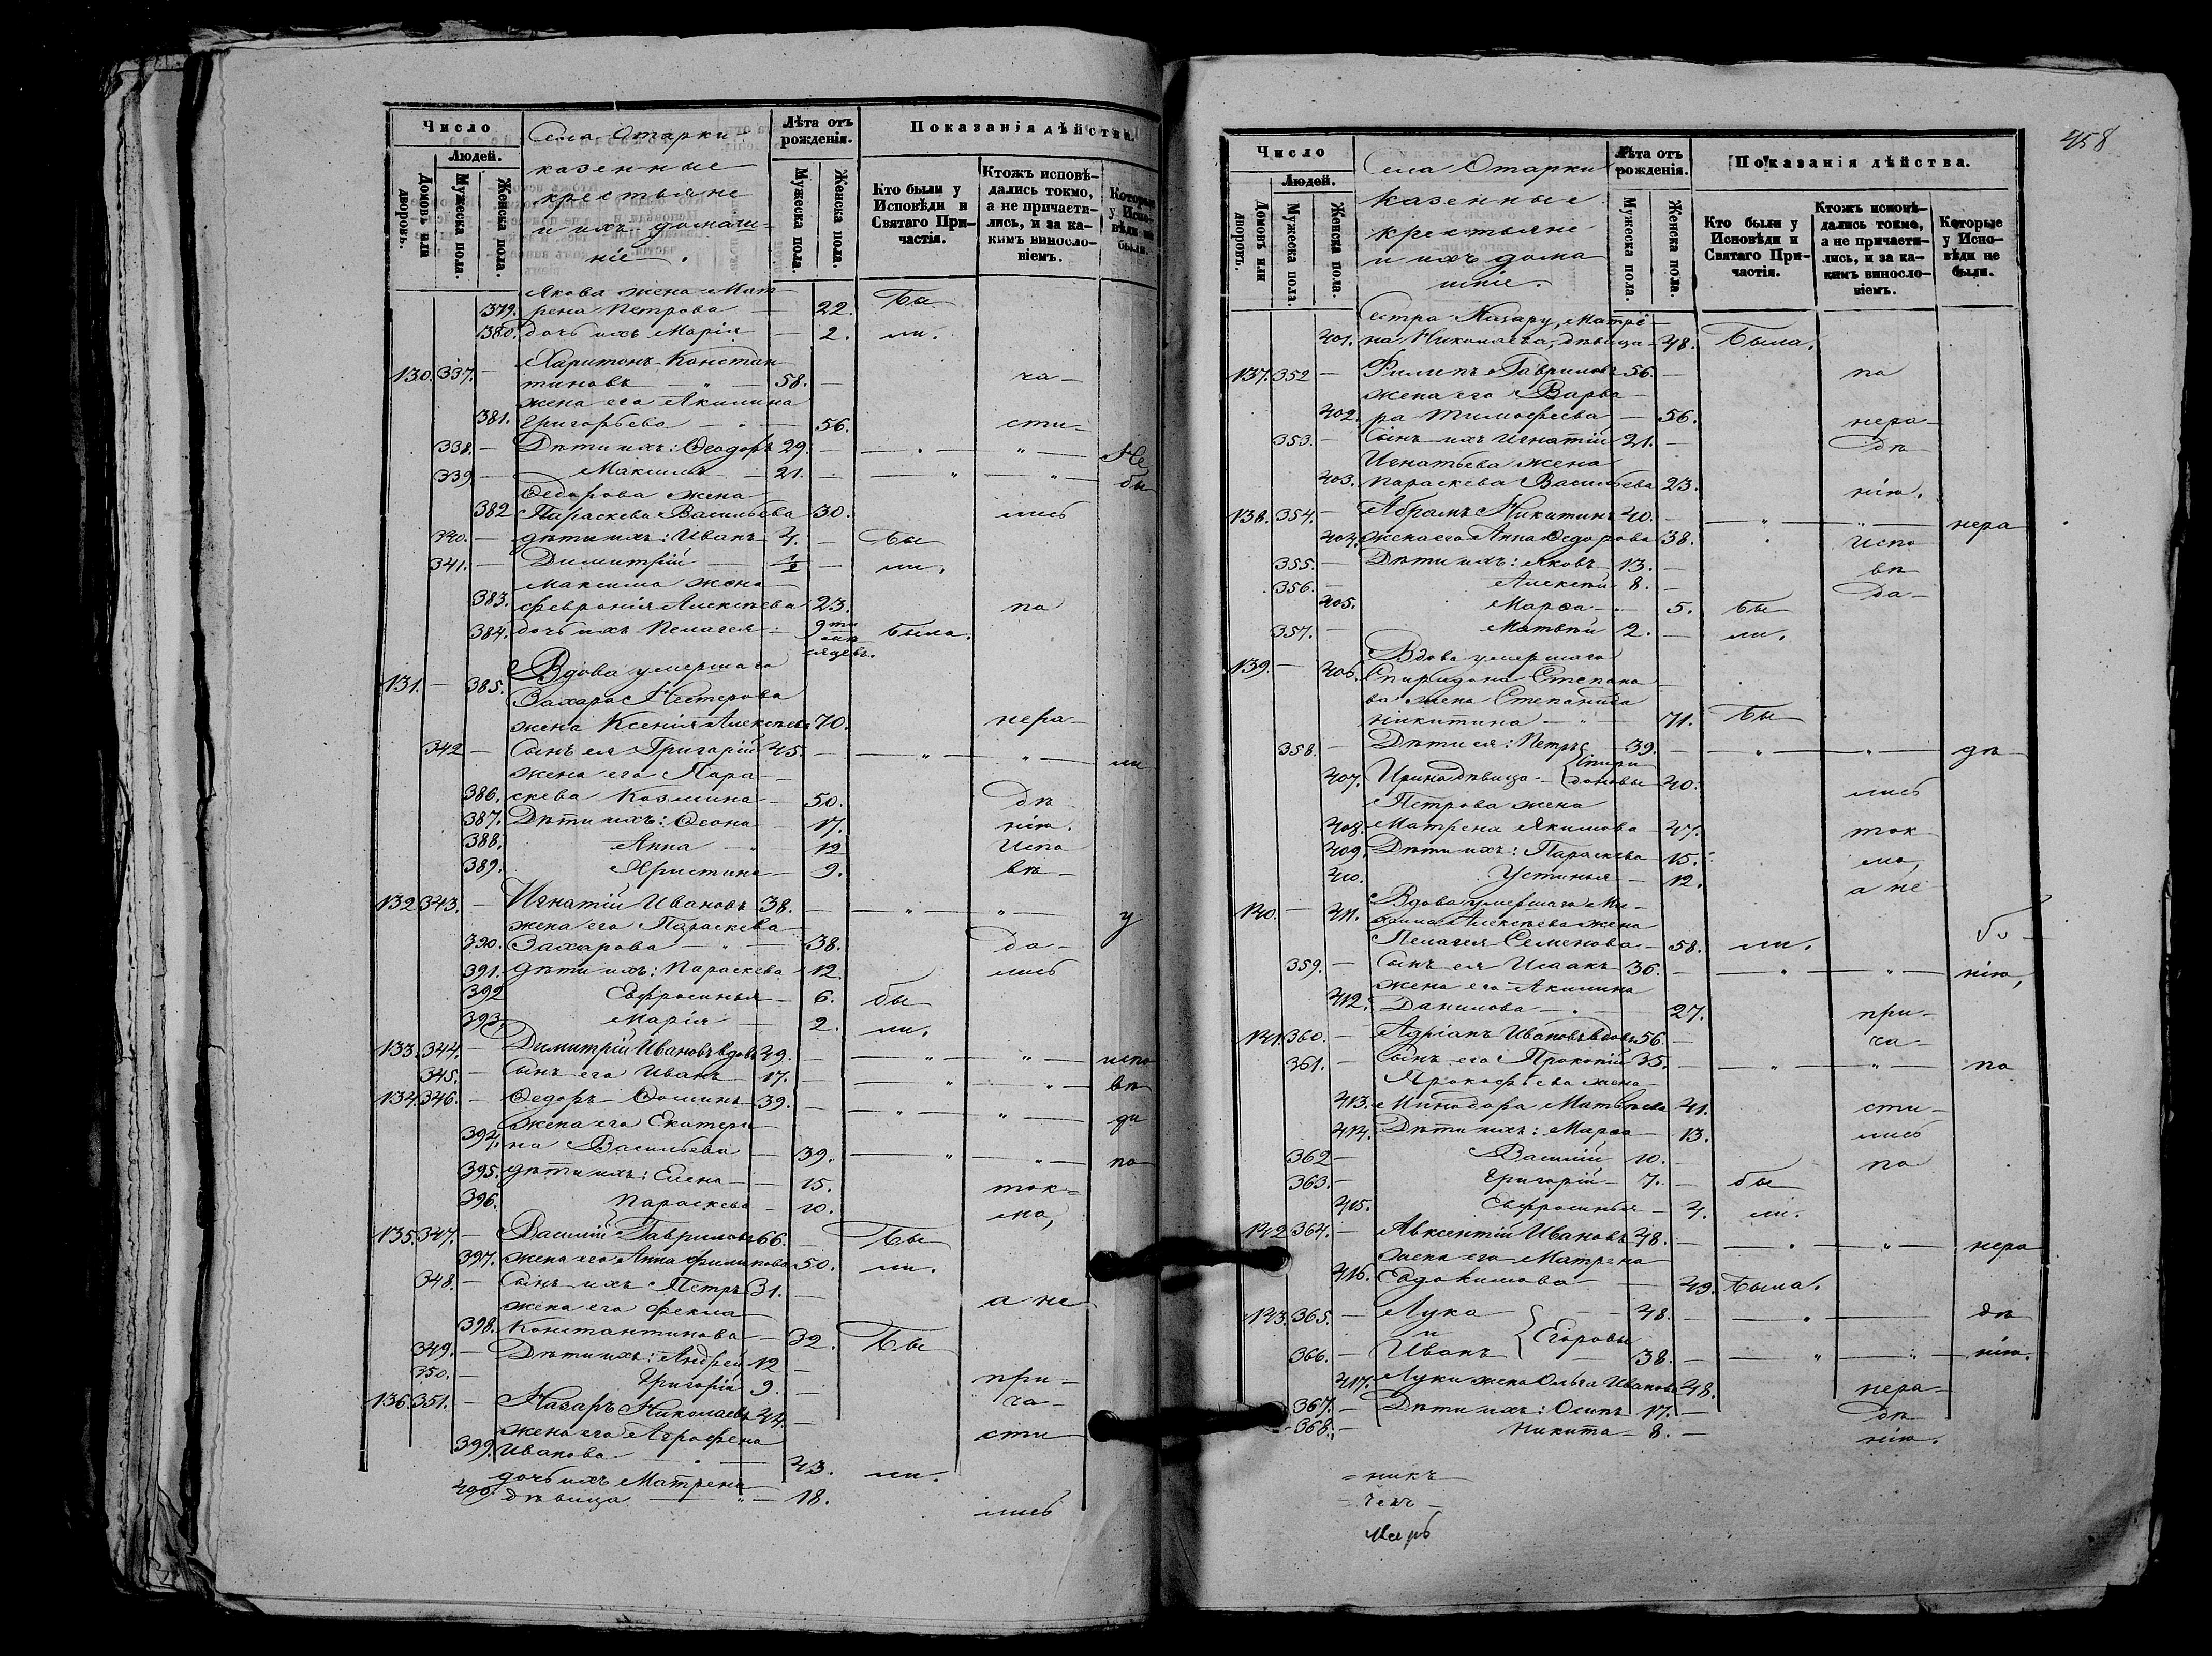 Число
Людей.
Домовъ или дворовъ.
Мужеска пола.
Женска пола.
Села Отарки
казенные
крестьяне
и ихъ домаш-
ніе.
Лѣта отъ рожденія.
Мужеска пола.
Женска пола.
Показанія дѣйства.
Кто были у Исповѣди и Святаго При-
частія.
Ктожъ исповѣ-
дались токмо,
а не причасти-
лись, и за ка-
кимъ винносло-
віемъ.
Которые
у Испо-
вѣди не
были.
Якова жена Мат-
379. рена Петрова — 22. Бы
380. дочь ихъ Марія — 2. ли.
Харитонъ Констан-
130. 337. — тиновъ — 58. — ча-
жена его Акилина
381. Григорьева — 56. сти-
338. — Дѣти ихъ: Ѳеодоръ 29. — Не
339 — Максимъ — 21. — бы
Ѳедорова жена
382 Параскева Васильева 30. лись
340. — дѣти ихъ: Иванъ 4. — Бы
341. — Димитрій ½ — ли.
Максима жена
383. Февронія Алексѣева 23. по
384. дочь ихъ Пелагея — 9ти мѣсяцевъ. была.
Вдова умершаго
131. — 385. Захара Нестерова
жена Ксенія Алексѣева 70. нера-
342 — Сынъ ея Григорій 45. — ли
жена его Пара-
386. скева Козмина — 50. дѣ
387. Дѣти ихъ: Ѳеона — 17. нію.
388. Анна — 12 Испо
389. Христина — 9. вѣ-
132 343. — Игнатій Ивановъ 38. — у
жена его Параскева
390. Захарова — 38. да-
391. дѣти ихъ: Параскева 12. лись
392 Евфросинья — 6. бы
393. Марія — 2. ли.
133. 344. — Димитрій Ивановъ вдовъ 49. — испо
345. — Сынъ его Иванъ — 17. — вѣ
134. 346. — Ѳедоръ Ѳоминъ 39. — ди
жена его Екатери-
394. на Васильева — 39. — по
395. дѣти ихъ: Елена — 15. ток-
396. Параскева — 10. мо,
135. 347. — Василій Гавриловъ 66. — Бы
397. жена его Анна Филипова 50. ли.
348. — Сынъ ихъ Петръ 31. — а не
жена его Фекла
398. Константинова — 32. Бы
349. — Дѣти ихъ: Андрей 12 —
350. — Григорій 9. — при-
136. 351. — Назаръ Николаевъ 44. — ча-
жена его Аграфена сти
399. Иванова — 43. ли.
дочь ихъ Матрена
400. дѣвица — 18. лись
458
Число
Людей.
Домовъ или дворовъ.
Мужеска пола.
Женска пола.
Села Отарки
казенные
крестьяне
и ихъ дома
шніе.
Лѣта отъ рожденія.
Мужеска пола.
Женска пола.
Показанія дѣйства.
Кто были у Исповѣди и Святаго При-
частія.
Ктожъ исповѣ-
дались токмо,
а не причасти-
лись, и за ка-
кимъ винносло-
віемъ.
Которые
у Испо-
вѣди не
были.
Сестра Назару, Матре-
401. на Николаева, дѣвица — 48. Была.
137. 352 — Филипъ Гавриловъ 56. — по
жена его Варва-
402. ра Тимофеева — 56. нера-
353. — Сынъ ихъ Игнатій 21. — дѣ
Игнатьева жена
403. Параскева Васильева 23. нію.
138. 354. — Абрамъ Никитинъ 40. — нера
404. жена его Анна Ѳедорова 38. Испо
355. — Дѣти ихъ: Яковъ — 13. — вѣ
356. — Алексѣй 8. — да-
405. Марѳа — 5. бы
357. — Матвѣй 2. — ли.
Вдова умершаго
139. — 406. Спиридона Степано
ва жена Степанида
Никитина — 71. Бы
358. — Дѣти ея: Петръ 39. — дѣ
407. Ирина дѣвица — Спиридоновы 40. лись
Петрова жена
408. Матрена Якимова — 47. ток
409. Дѣти ихъ: Параскева — 15. мо,
410. Устинья — 12. а не
140. — 411. Вдова умершаго Ми-
хаила Алексѣева жена
Пелагея Семенова — 58. ли.
359. — Сынъ ея Исаакъ 36. — нію,
жена его Акилина
412. Данилова — 27. при-
141. 360. — Адріанъ Ивановъ вдовъ 56. — ча-
361. — Сынъ его Прокопій 35. — по
Прокофьева жена
413. Минодора Матвѣева 41. сти-
414. Дѣти ихъ: Марѳа — 13. лись
362 — Василій 10. — по
363. — Григорій 7. — бы
415. Евфросинья — 4. ли.
142 364. — Авксентій Ивановъ 48. — нера
жена его Матрена
416. Евдокимова — 49. была.
143. 365. — Лука — 48. — дѣ
и Егоровы
366. — Иванъ — 38. — нію.
417. Луки жена Ольга Иванова 48. нера-
367. — Дѣти ихъ: Осипъ 17. — дѣ
368. — Никита — 8. — нію.
=никъ